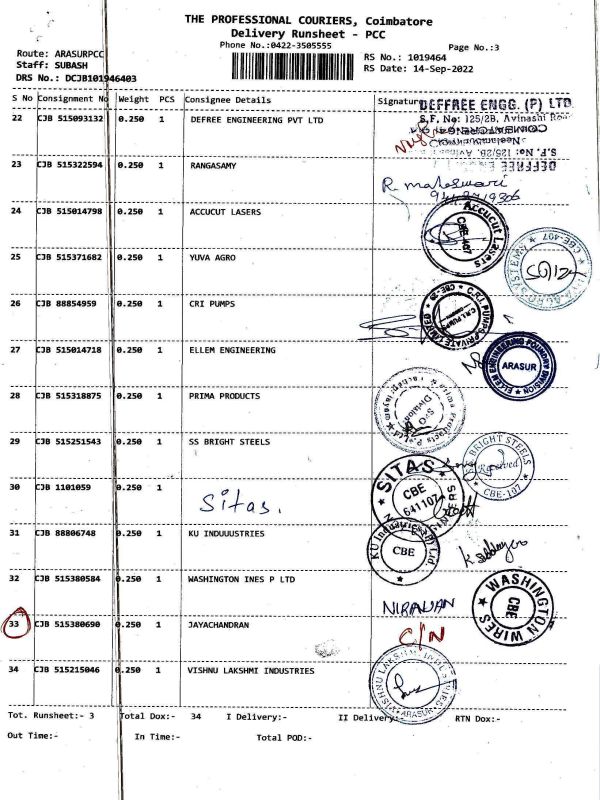 THE PROFESSIONAL COURIERS, Coimbatore
Delivery Runsheet - PCC
Phone No.:0422-3505555
Page No.:3
Route: ARASURPCC
Staff: SUBASH
DRS No.: DCJB101946403
RS No.: 1019464
RS Date: 14-Sep-2022
S No Consignment No Weight PCS Consignee Details Signature
22 CJB 515093132 0.250 1 DEFREE ENGINEERING PVT LTD
DEFFREE ENGG. (P) LTD
S.F. No: 125/2B, Avinashi
23 CJB 515322594 0.250 1 RANGASAMY
R. maheswari
24 CJB 515014798 0.250 1 ACCUCUT LASERS
Accucut Lasers
CBE-407
25 CJB 515371682 0.250 1 YUVA AGRO
SYSTEMS ★ CBE-407
26 CJB 88854959 0.250 1 CRI PUMPS
C.R.I. PUMPS PRIVATE LIMITED
C.R.I. PUMPS
27 CJB 515014718 0.250 1 ELLEM ENGINEERING
ELLEM ENGINEERING FOUNDRY DIVISION
ARASUR
28 CJB 515318875 0.250 1 PRIMA PRODUCTS
Division
29 CJB 515251543 0.250 1 SS BRIGHT STEELS
BRIGHT STEELS
Received
30 CJB 1101059 0.250 1
Sitas.
SITAS
CBE
641107
31 CJB 88806748 0.250 1 KU INDUUUSTRIES
KU Industries (P) Ltd
CBE
32 CJB 515380584 0.250 1 WASHINGTON INES P LTD
NIRAJAN
WASHINGTON WIRES
CBE
33 CJB 515380690 0.250 1 JAYACHANDRAN
C/N
34 CJB 515215046 0.250 1 VISHNU LAKSHMI INDUSTRIES
VISHNU LAKSHMI INDUSTRIES
ARASUR
Tot. Runsheet:- 3 Total Dox:- 34 I Delivery:- II Delivery:- RTN Dox:-
Out Time:- In Time:- Total POD:-